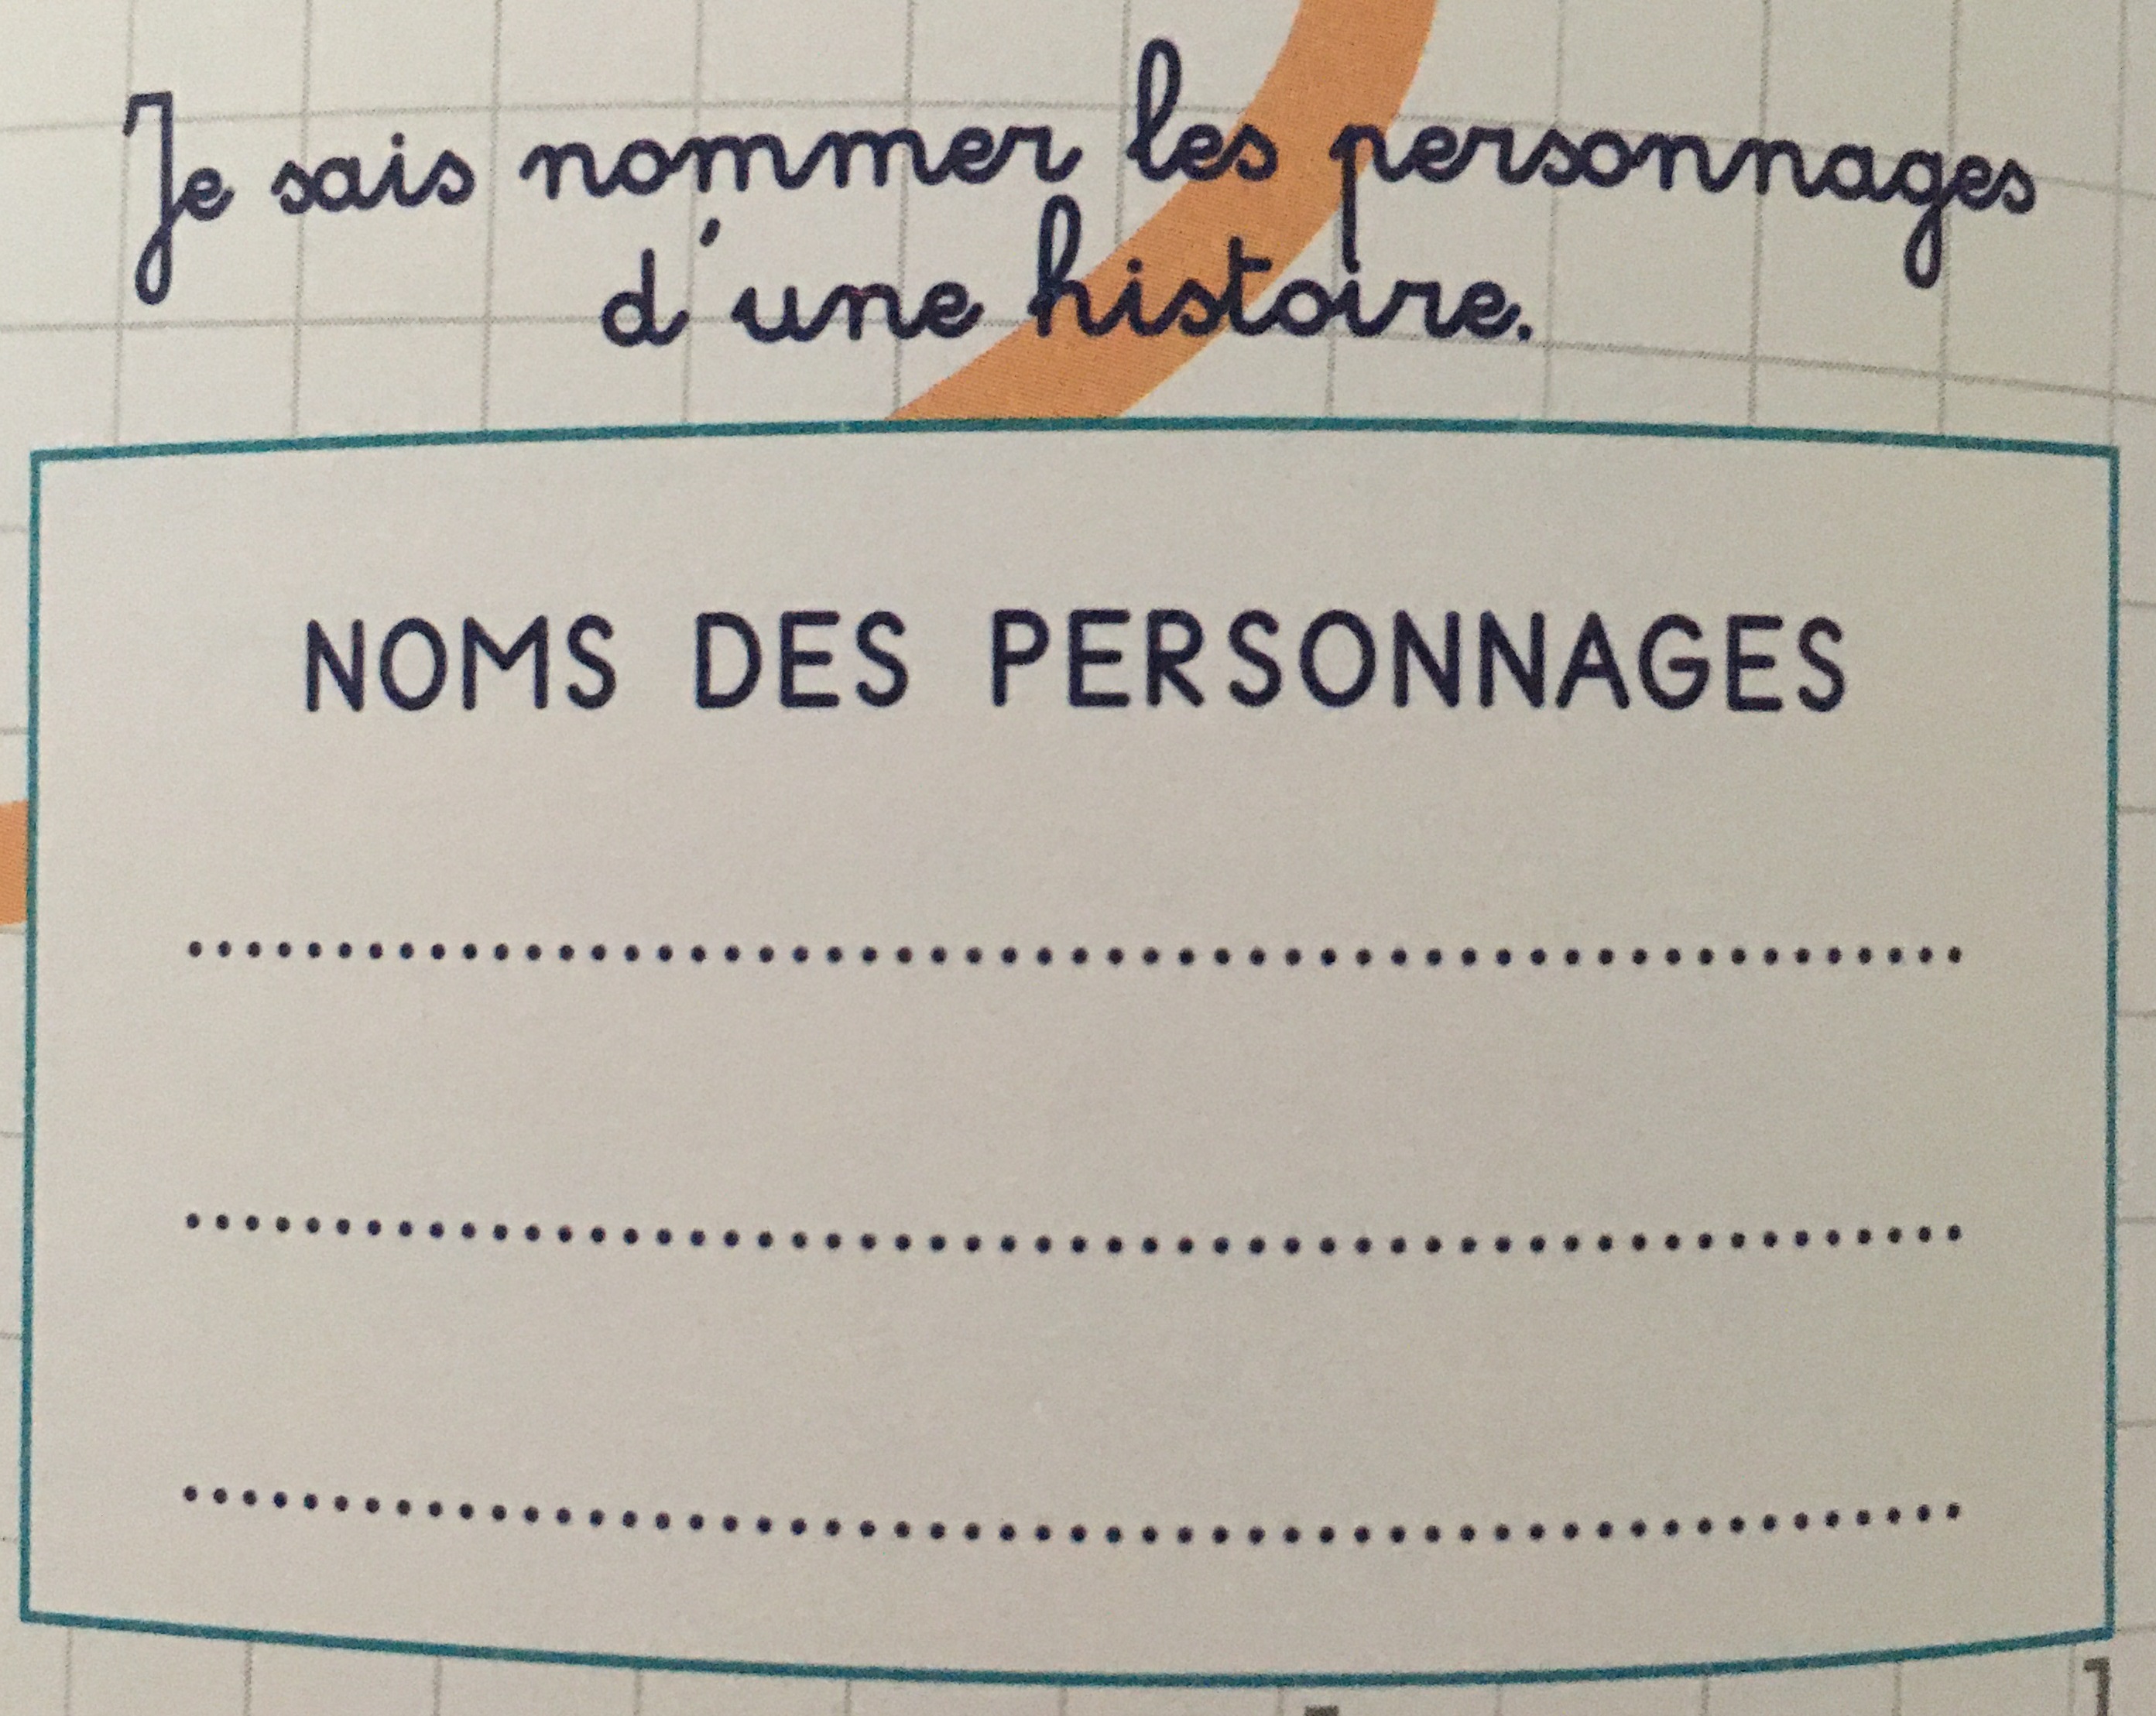 Je sais nommer les personnages
d'une histoire.
NOMS DES PERSONNAGES
1